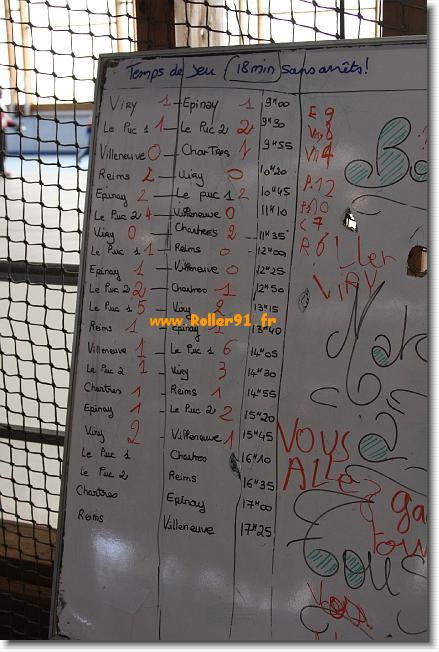 Temps de Jeu (18 min sans arrêts!
Viry 1 - Epinay 1 9H00
Le Puc 1 1 Le Puc 2 2 9H30
Villeneuve 0 Chartres 1 9H55
Reims 2 Viry 0 10H20
Epinay 2 Le puc 1 2 10H45
Le Puc 2 4 Villeneuve 0 11H10
Viry 0 Chartres 2 11H35
Le Puc 1 1 Reims 0 12H00
Epinay 1 Villeneuve 0 12H25
Le Puc 2 2 Chartres 1 12H50
Le Puc 1 5 Viry 13H15
www.Roller91.fr
Reims 1 Epinay 1 13H40
Villeneuve 1 Le Puc 1 6 14H05
Le Puc 2 1 Viry 3 14H30
Chartres 1 Reims 1 14H55
Epinay 1 Le Puc 2 2 15H20
Viry 2 Villeneuve 1 15H45
Le Puc 1 Chartres 16H10
Le Puc 2 Reims 16H35
Chartres Epinay 17H00
Reims Villeneuve 17H25
E 9
Vill 4
P.12
C 7
R 6
Roller
Viry
VOUS
ALLez